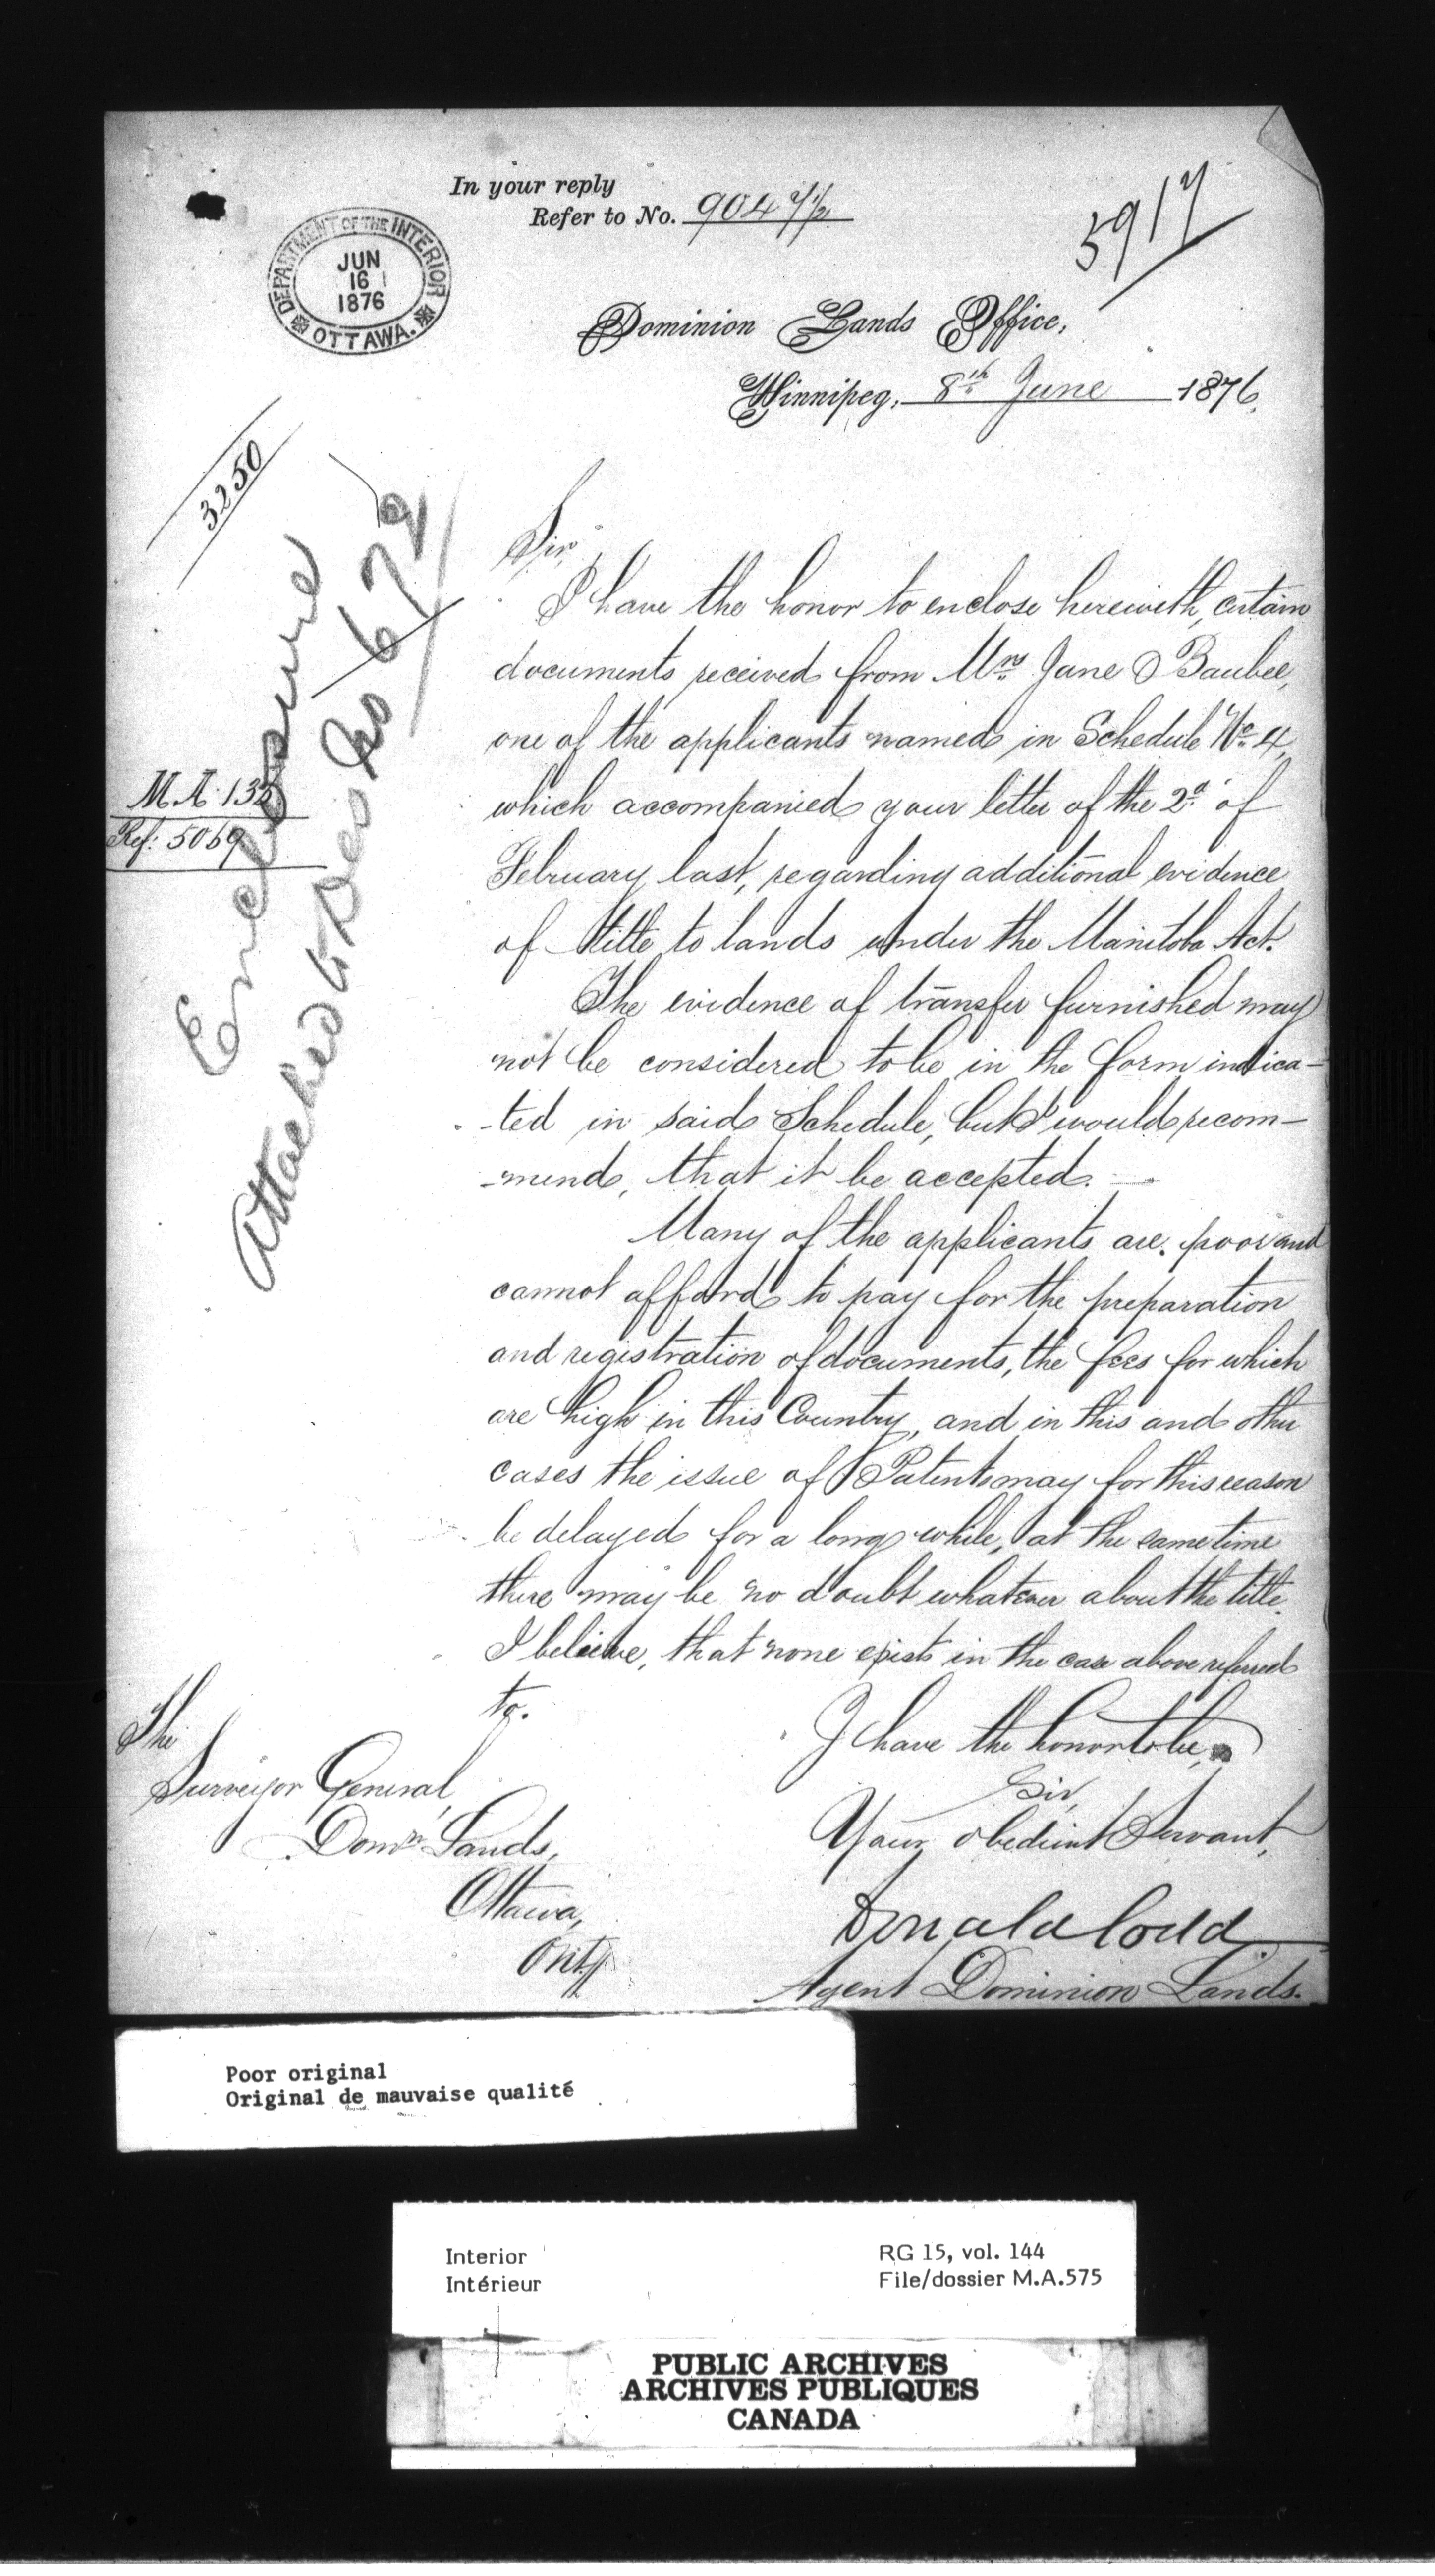 In your reply
Refer to No. 904 7½
5917
DEPARTMENT OF THE INTERIOR
JUN
16
1876
OTTAWA.
Dominion Lands Office,
Winnipeg, 8th June 1876.
3250
Enclosure
Attached to
No 672
M.A. 135
Ref: 5069
Sir,
I have the honor to enclose herewith, certain
documents received from Mrs. Jane O Baubee,
one of the applicants named in Schedule No. 4,
which accompanied your letter of the 2d. of
February last, regarding additional evidence
of title to lands under the Manitoba Act.
The evidence of transfer furnished may
not be considered to be in the form indica-
-ted in said Schedule, but I would recom-
-mend, that it be accepted. —
Many of the applicants are poor and
cannot afford to pay for the preparation
and registration of documents, the fees for which
are high in this Country, and in this and other
cases the issue of Patents may for this reason
be delayed for a long while, at the same time
there may be no doubt whatever about the title.
I believe, that none exists in the case above referred
to.
I have the honor to be,
Sir,
Your obedient Servant,
Donald Codd
Agent Dominion Lands.
The
Surveyor General,
Domn Lands,
Ottawa,
Ont.
Poor original
Original de mauvaise qualité
Interior
Intérieur
RG 15, vol. 144
File/dossier M.A.575
PUBLIC ARCHIVES
ARCHIVES PUBLIQUES
CANADA